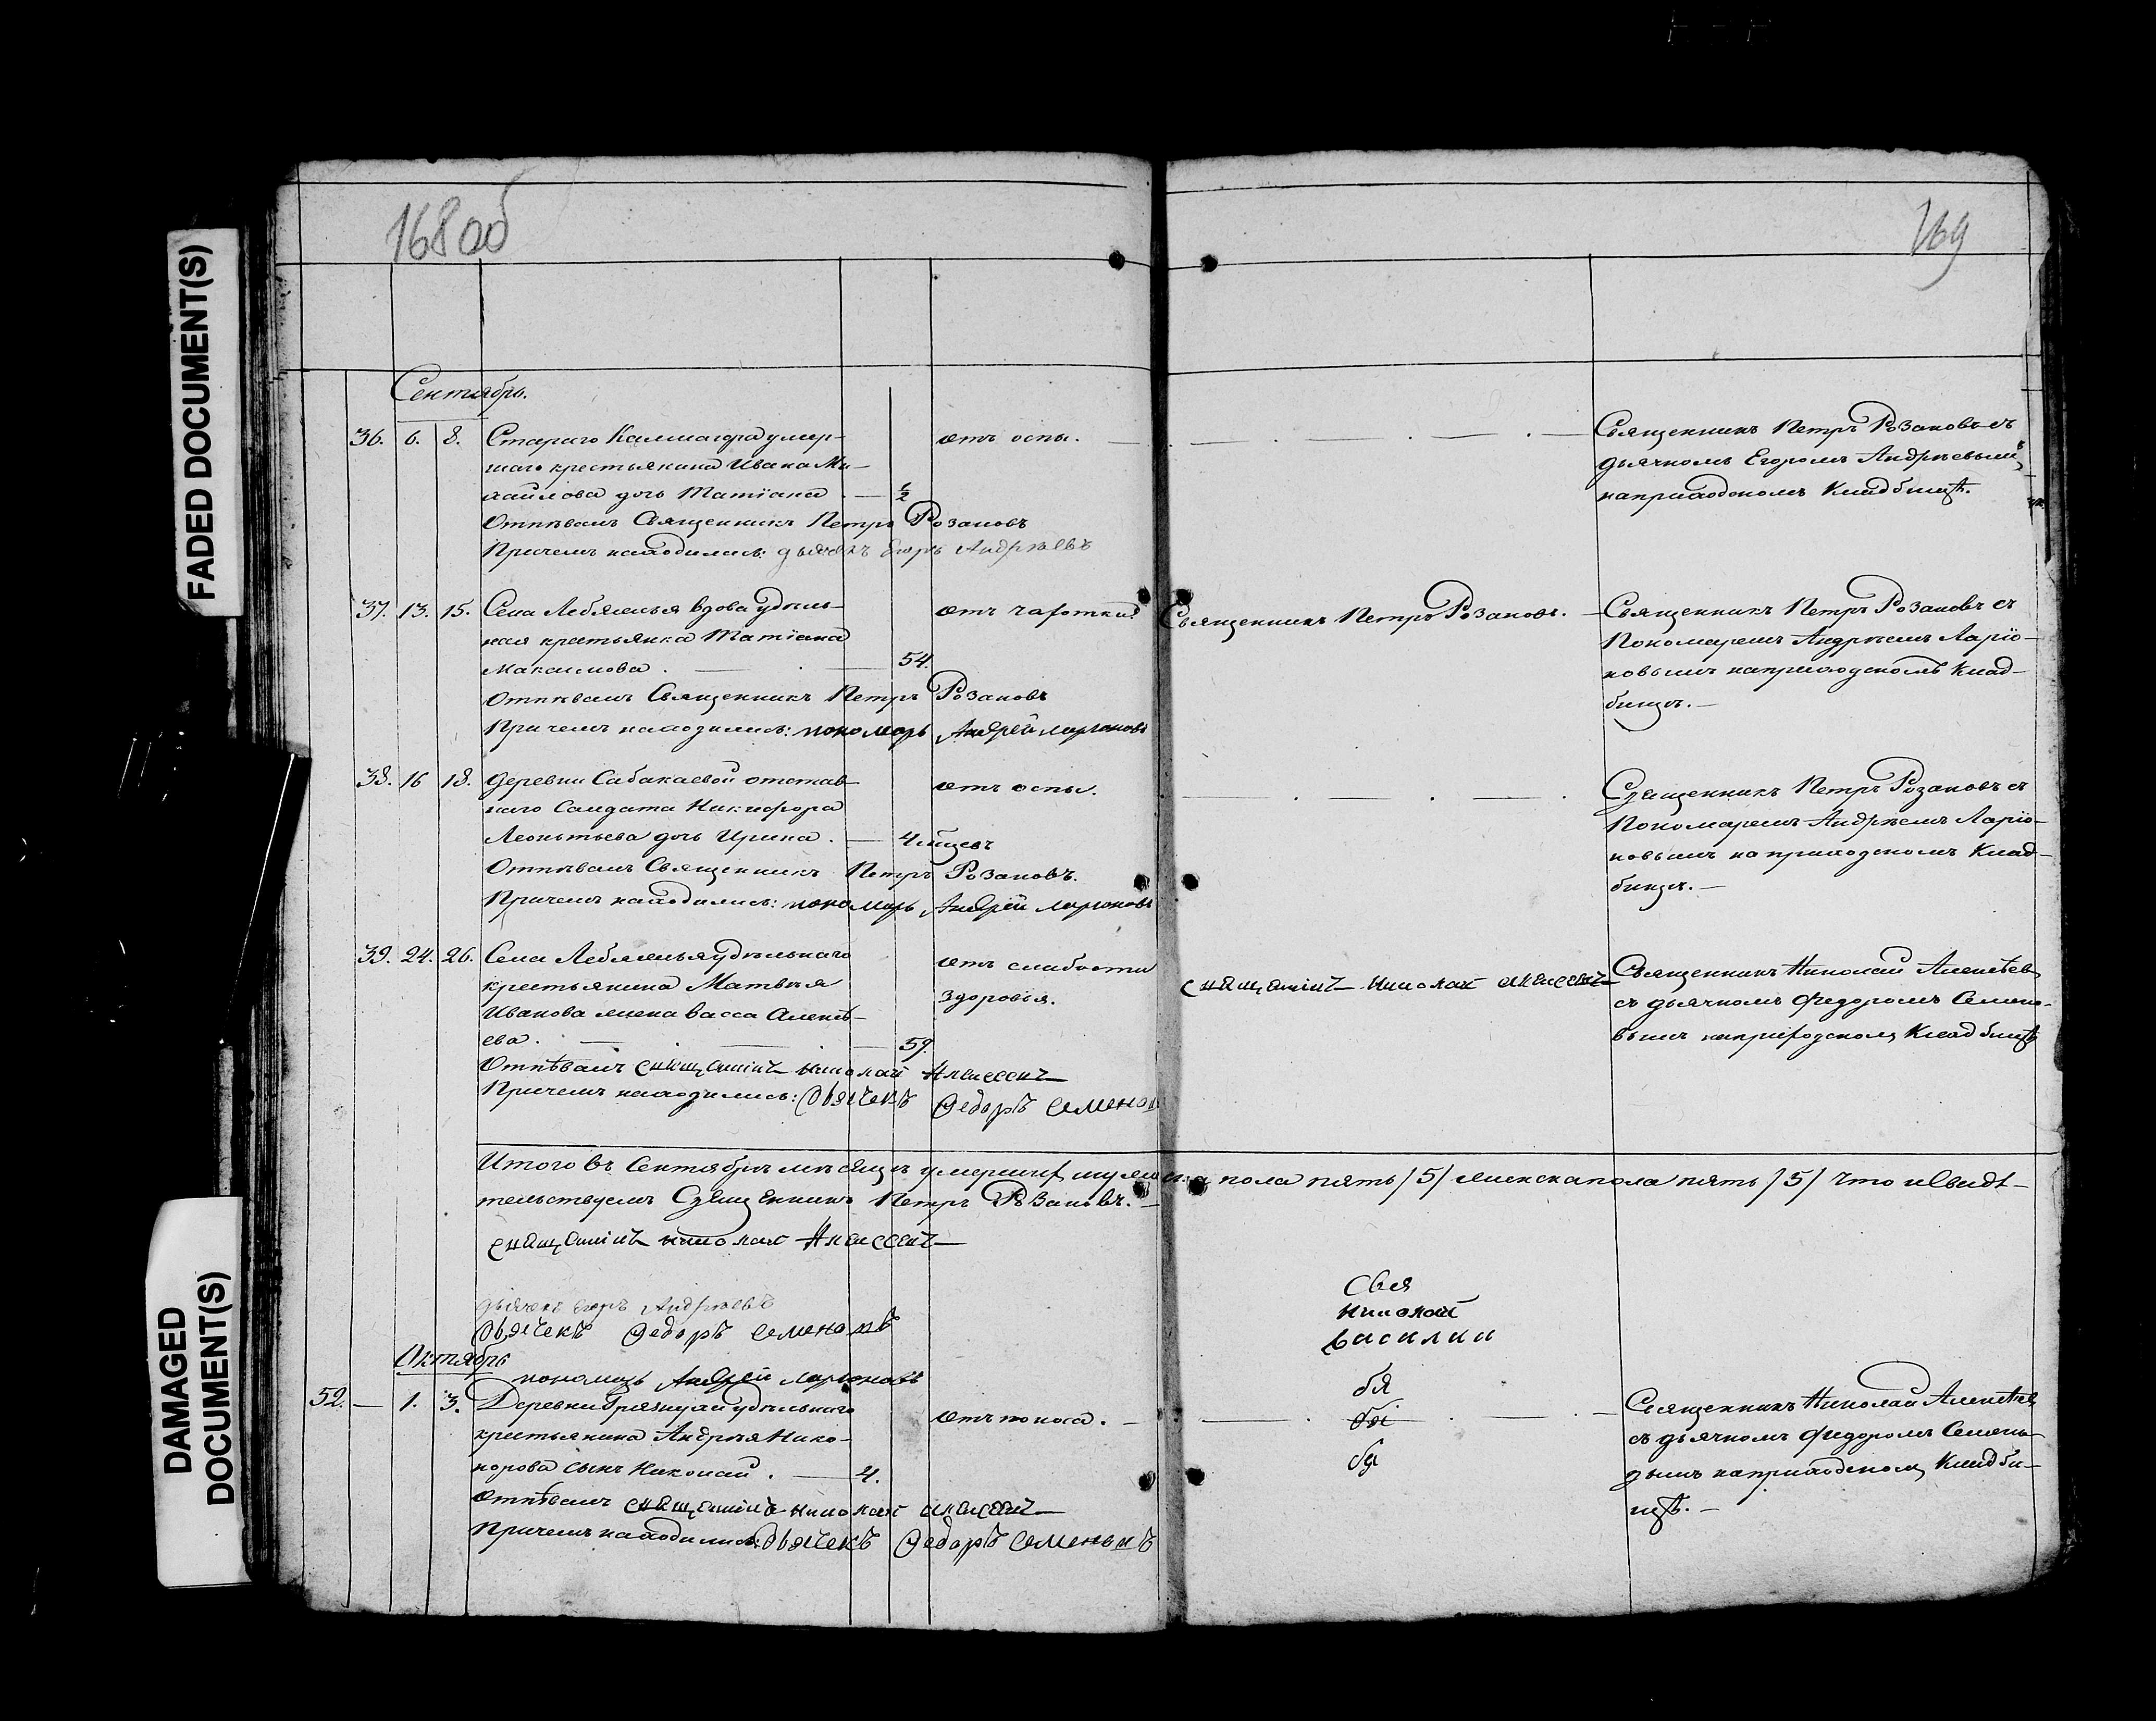 FADED DOCUMENT(S)
DAMAGED DOCUMENT(S)
168 об
169
Сентябрь.
36. 6. 8. Стараго Калмаюра умер-
шаго крестьянина Ивана Ми-
хайлова дочь Татiана . — 1/2
отъ оспы.
Отпѣвалъ Священникъ Петръ Розановъ
Причемъ находились: дьячекъ Егоръ Андреевъ
Священникъ Петръ Розановъ съ
дьячкомъ Егоромъ Андрѣевымъ
на приходскомъ кладбищѣ.
37. 13. 15. Села Лебяжья вдова удѣль-
ная крестьянка Татiана
Максимова . — 54.
отъ чахотки
Отпѣвалъ Священникъ Петръ Розановъ
Причемъ находились: пономарь Андрей Ларiоновъ
Священникъ Петръ Розановъ.
Священникъ Петръ Розановъ съ
Пономаремъ Андрѣемъ Ларiо-
новымъ на приходскомъ клад-
бищѣ. —
38. 16 18. деревни Сабакаевой отстав-
наго Салдата Никифора
Леонтьева дочь Ирина . — 4 мѣсяцевъ
отъ оспы.
Отпѣвалъ Священникъ Петръ Розановъ.
Причемъ находились: пономарь Андрей Ларiоновъ
Священникъ Петръ Розановъ съ
Пономаремъ Андрѣемъ Ларiо-
новымъ на приходскомъ клад-
бищѣ. —
39. 24. 26. Села Лебяжья удѣльнаго
крестьянина Матвѣя
Иванова жена Васса Алексѣ-
ева. — 59.
отъ слабости
здоровья.
Отпѣвалъ священникъ николай Алексеевъ
Причемъ находились: Дьячекъ Федоръ Семенов
священникъ николай алексеевъ
Священникъ Николай Алексѣев
съ дьячкомъ Федоромъ Семено-
вымъ на приходском кладбищѣ
Итого въ Сентябрѣ мѣсяцѣ умерших мужеска пола пять /5/ женска пола пять /5/ что и свидѣ-
тельствуемъ Священникъ Петръ Розановъ. —
священникъ николай Алексеевъ
дьячекъ Егоръ Андреевъ
Дьячекъ Федоръ Семеновъ
пономарь Андрей Ларiоновъ
Свя
Николай
Василии
бя
бя
бя
Октябрь
52. — 1. 3. Деревни Грязнухи удѣльнаго
крестьянина Андрѣя Нико-
норова сынъ Николай . — 4.
отъ поноса. —
Отпѣвалъ священникъ николай алексеевъ
Причемъ находились: Дьячекъ Федоръ Семеновъ
Священникъ Николай Алексѣев
съ дьячкомъ Федоромъ Семено-
вымъ на приходском кладби-
щѣ. —